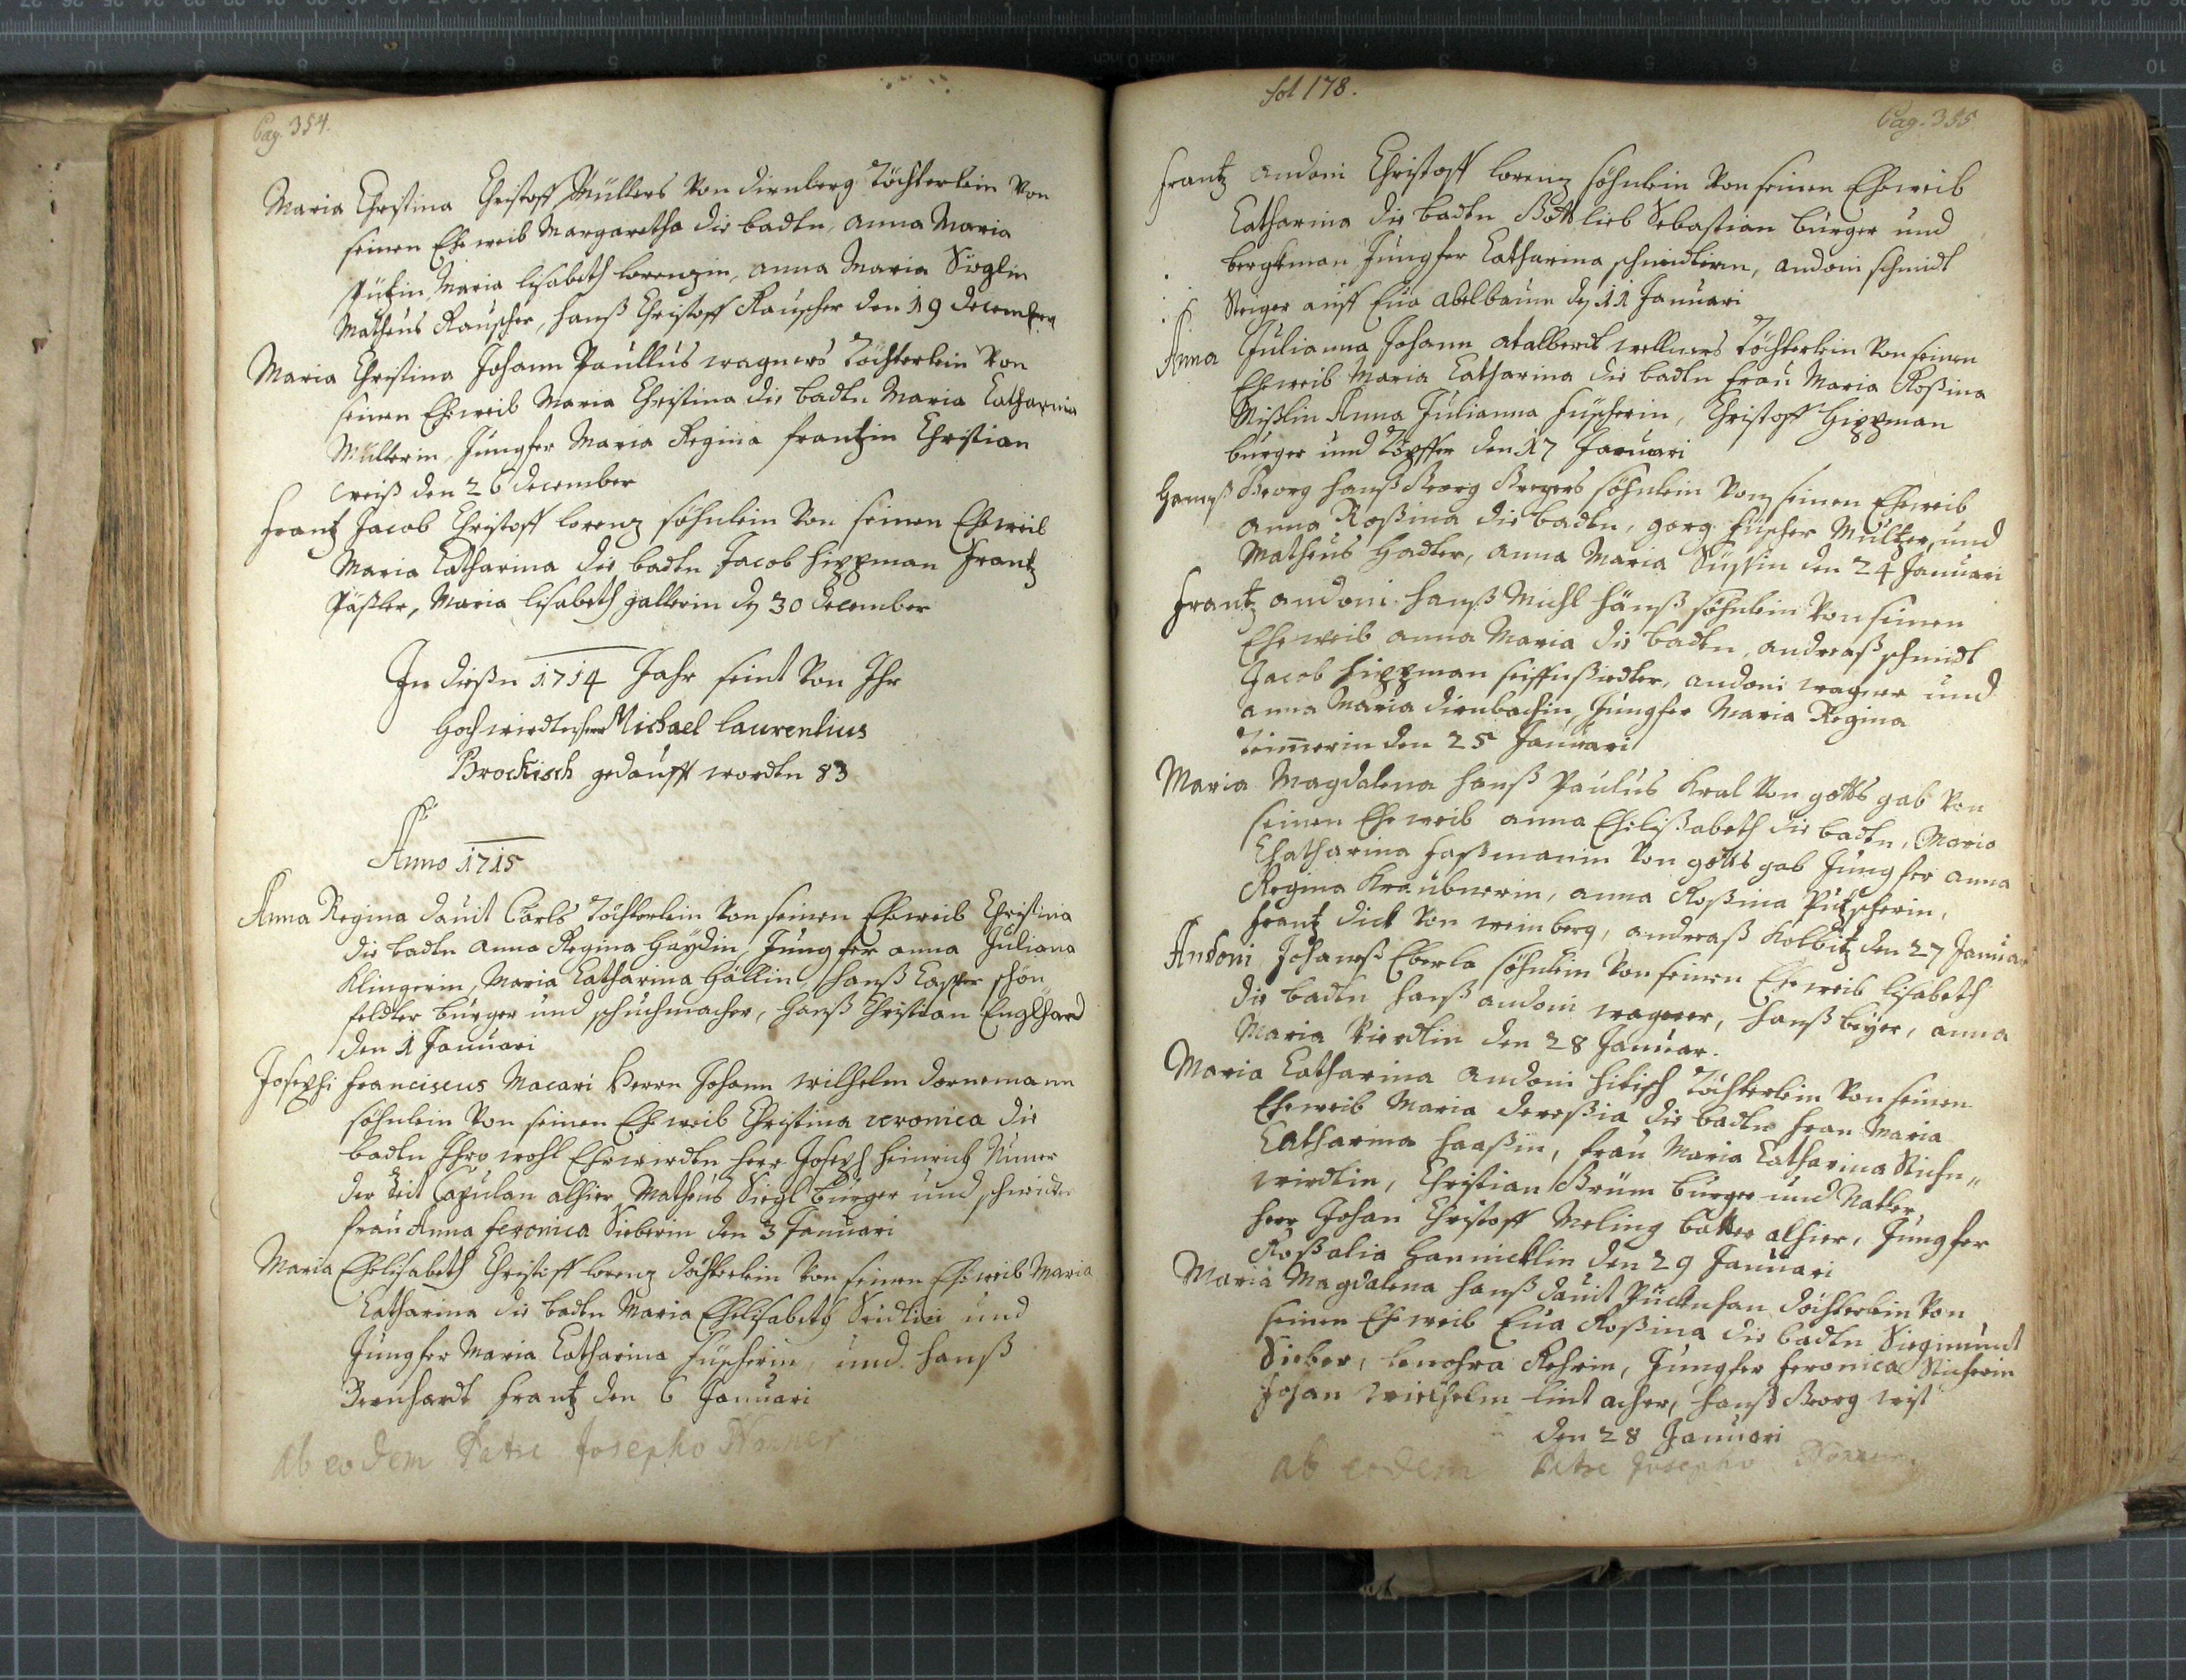 Pag. 354.
Maria Christina Christoff Müllers von dirnberg Töchterlein von
seinen Eheweib Margaretha die badtn, anna Maria
Maria lisabeth lorenzin, anna Maria Sieglin
Matheus Rauscher, Hanß Christoff Rauscher den 19 december
Maria Christina Johann Paullus wagners Töchterlein von
seinen Eheweib Maria Christina die badtn Maria Catharina
Müllerin, Jungfer Maria Regina frantzin Christian
weiß den 26 december
Frantz Jacob Christoff lorenz söhnlein von seinen Eheweib
Maria Catharina die badtn Jacob hippman Frantz
Päßler, Maria lisabeth gallerin dz 30 december
In dießen 1714 Jahr seint von Ihr
Hochwirdten herr Michael Laurentius
Brockisch gedaufft wordtn 83
Anno 1715
Anna Regina dauit Carls Töchterlein von seinen Eheweib Christina
die badtn anna Regina Haydin, Jungfer anna Juliana
Klingerin, Maria Catharina Hallin, Hanß Casper schön
feldter burger und schuhmacher, Hanß Christian Englhard
den 1 Januari
Josephi Franciscus Macari Herrn Johann Wilhelm dornemann
söhnlein von seinen Eheweib Christina veronica die
badtn Ihro wohl Ehrwirdtn herr Joseph Heinrich
der Zeit Capulan alhier, Matheus Siegl burger und schmidt
frau Anna feronica Sieberin den 3 Januari
Maria Ehelisabeth Christoff lorenz döchterlein von seinen Eheweib Maria
Catharina die badtn Maria Ehelisabeth Seidlin und
Jungfer Maria Catharina Füscherin, und Hanß
Bernhardt frantz den 6 Januari
Ab eodem Patre Josepho
Fol 178.
Pag. 355
Frantz andoni Christoff lorenz söhnlein von seinen Eheweib
Catharina die badtn Gottlieb Sebastian burger und
bergkman Jungfer Catharina schmidtin, andoni schmidt
Steiger auff Eua abelbaum dz 11 Januari
Anna Julianna Johann atalberdt wellners Töchterlein von seinen
Eheweib Maria Catharina die badtn frau Maria Roßina
Mißlin Anna Julianna Füscherin, Christoff Hippman
burger und Töpffer den 17 Januari
Hannß Georg Hanß Georg söhnlein von seinen Eheweib
anna Roßina die badtn, gorg Füscher Müller, und
Matheus Hadler, anna Maria den 24 Januari
Frantz andoni Hanß Michl söhnlein von seinen
Eheweib anna Maria die badtn, andreaß schmidt
Jacob hippman seiffensiedter, andoni wagner und
anna Maria dirnbachin, Jungfer Maria Regina
den 25 Januari
Maria Magdalena Hanß Paulus Kral von gottsgab von
seinen Eheweib anna Ehelißabeth die badtn, Maria
Chatharina Haßmanin von gottsgab Jungfer anna
Regina Kreubnerin, anna Roßina Pützscherin,
Frantz dick von weinberg, andreaß Kolbitz den 27 Januar
Andoni Johanß Eberla söhnlein von seinen Eheweib lisabeth
die badtn Hanß andoni wagner, Hanß beyer, anna
Maria den 28 Januar.
Maria Catharina andoni Töchterlein von seinen
Eheweib Maria dereßia die badtn frau Maria
Catharina Haaßin, frau Maria Catharina
Christian Grüm burger und
herr Johan Christoff Meling alhier, Jungfer
Roßalia Hannicklin den 29 Januari
Maria Magdalena Hanß dauit döchterlein von
seinen Eheweib Eua Roßina die badtn Siegimundt
Sieber, lenohra Rehrin, Jungfer feronica
Johan Wielhelm lintacher, Hanß Georg
den 28 Januari
Ab eodem Patre Josepho